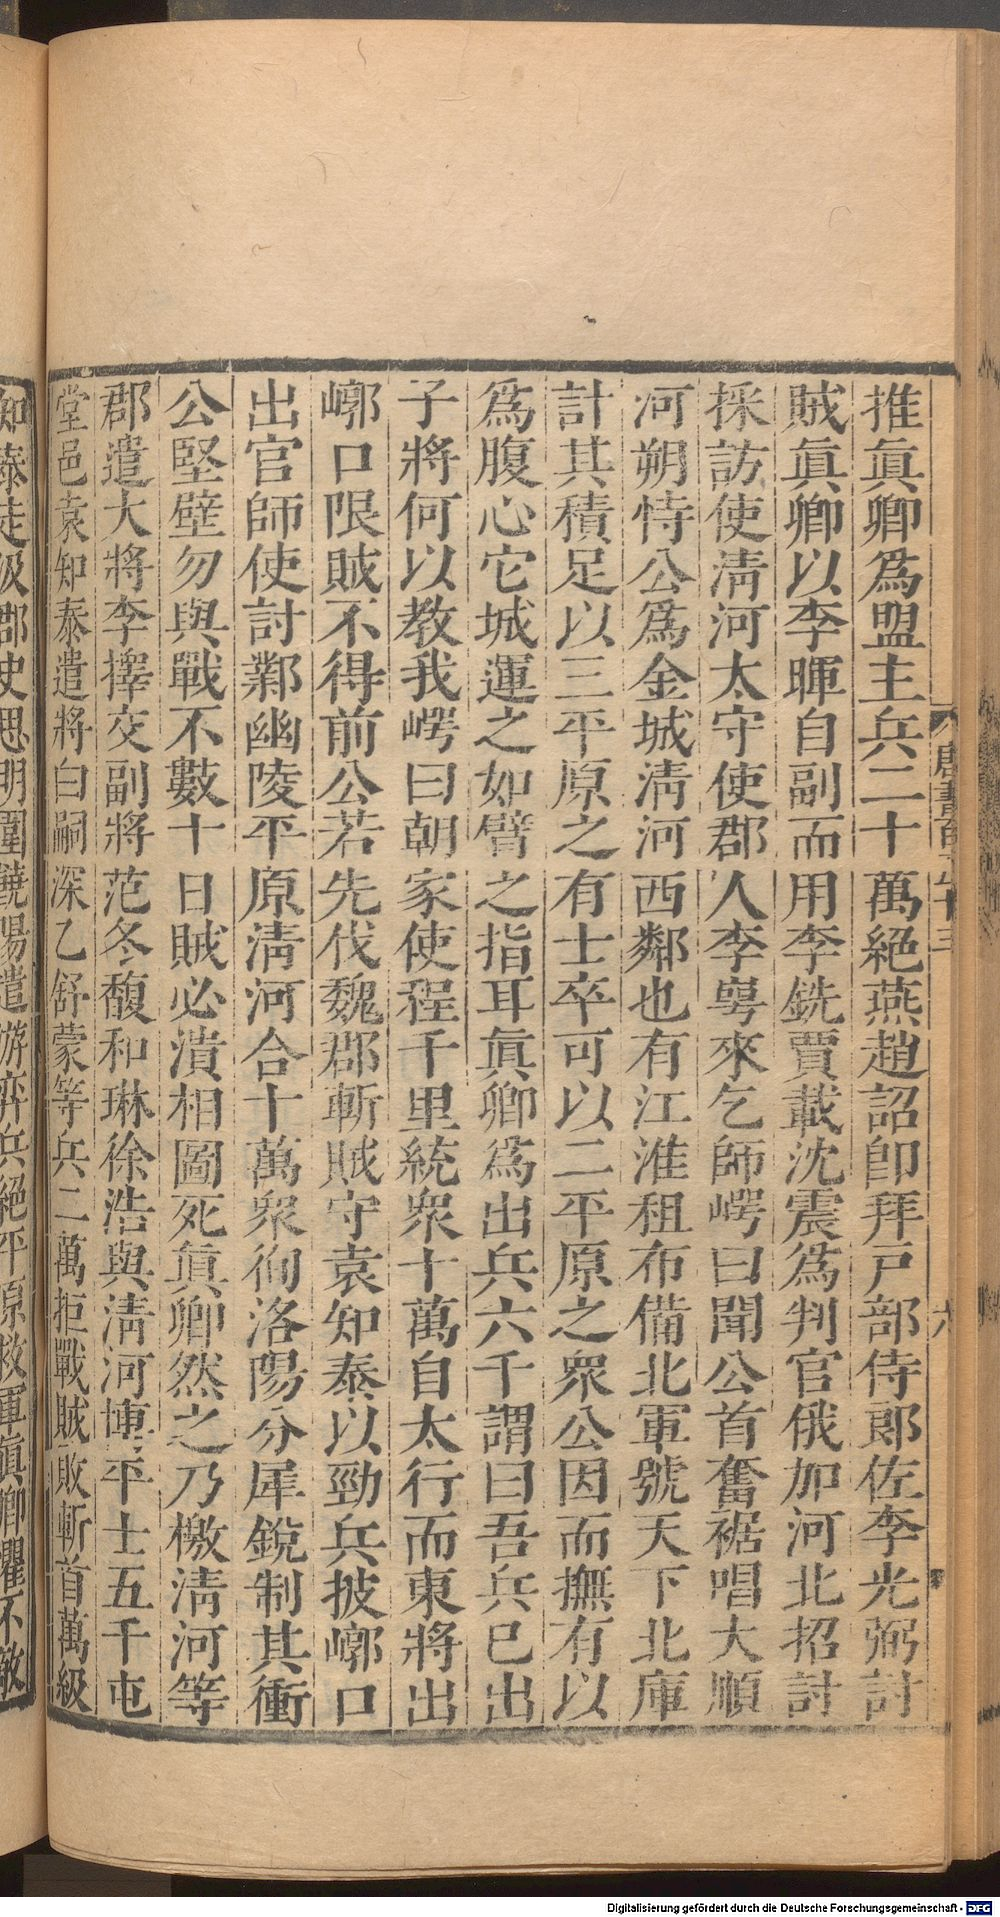 推眞卿爲盟主兵二十萬絕燕趙詔卽拜戸部侍郎佐李光弼討
賊眞卿以李暉自副而用李銑賈載沈震爲判官俄加河北招討
採訪使淸河太守使郡人李㟧來乞師㟧曰聞公首奮裾唱大順
河朔恃公爲金城淸河西鄰也有江淮租布備北軍號天下北庫
計其積足以三平原之有士卒可以二平原之眾公因而撫有以
爲腹心它城運之如臂之指耳眞卿爲出兵六千謂曰吾兵已出
子將何以教我㟧曰朝家使程千里統眾十萬自太行而東將出
㟭口限賊不得前公若先伐魏郡斬賊守袁知泰以勁兵披㟭口
出官師使討鄴幽陵平原淸河合十萬眾徇洛陽分犀銳制其衝
公堅壁勿與戰不數十日賊必潰相圖死眞卿然之乃檄淸河等
郡遣大將李擇交副將范冬馥和琳徐浩與淸河博平士五千屯
堂邑袁知泰遣將白嗣深乙舒蒙等兵二萬拒戰賊敗斬首萬級
知泰走汲郡史思明圍饒陽遣游弈兵絕平原救軍眞卿懼不敵
唐書百五十三
六
Digitalisierung gefördert durch die Deutsche Forschungsgemeinschaft - DFG